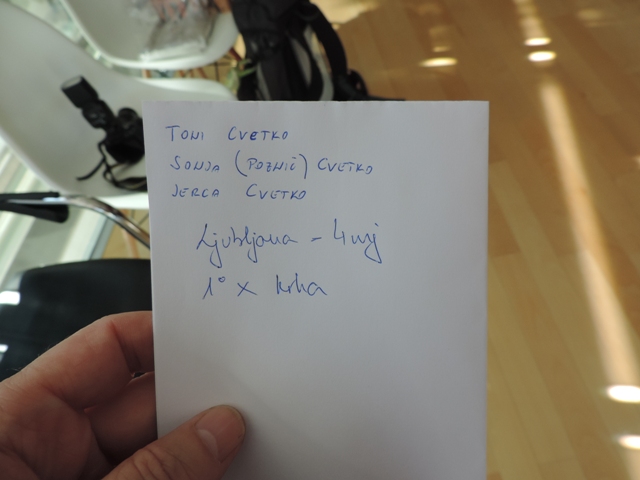 TONI CVETKO
SONJA (POZNIČ) CVETKO
JERCA CVETKO
Ljubljana -
1° x krka